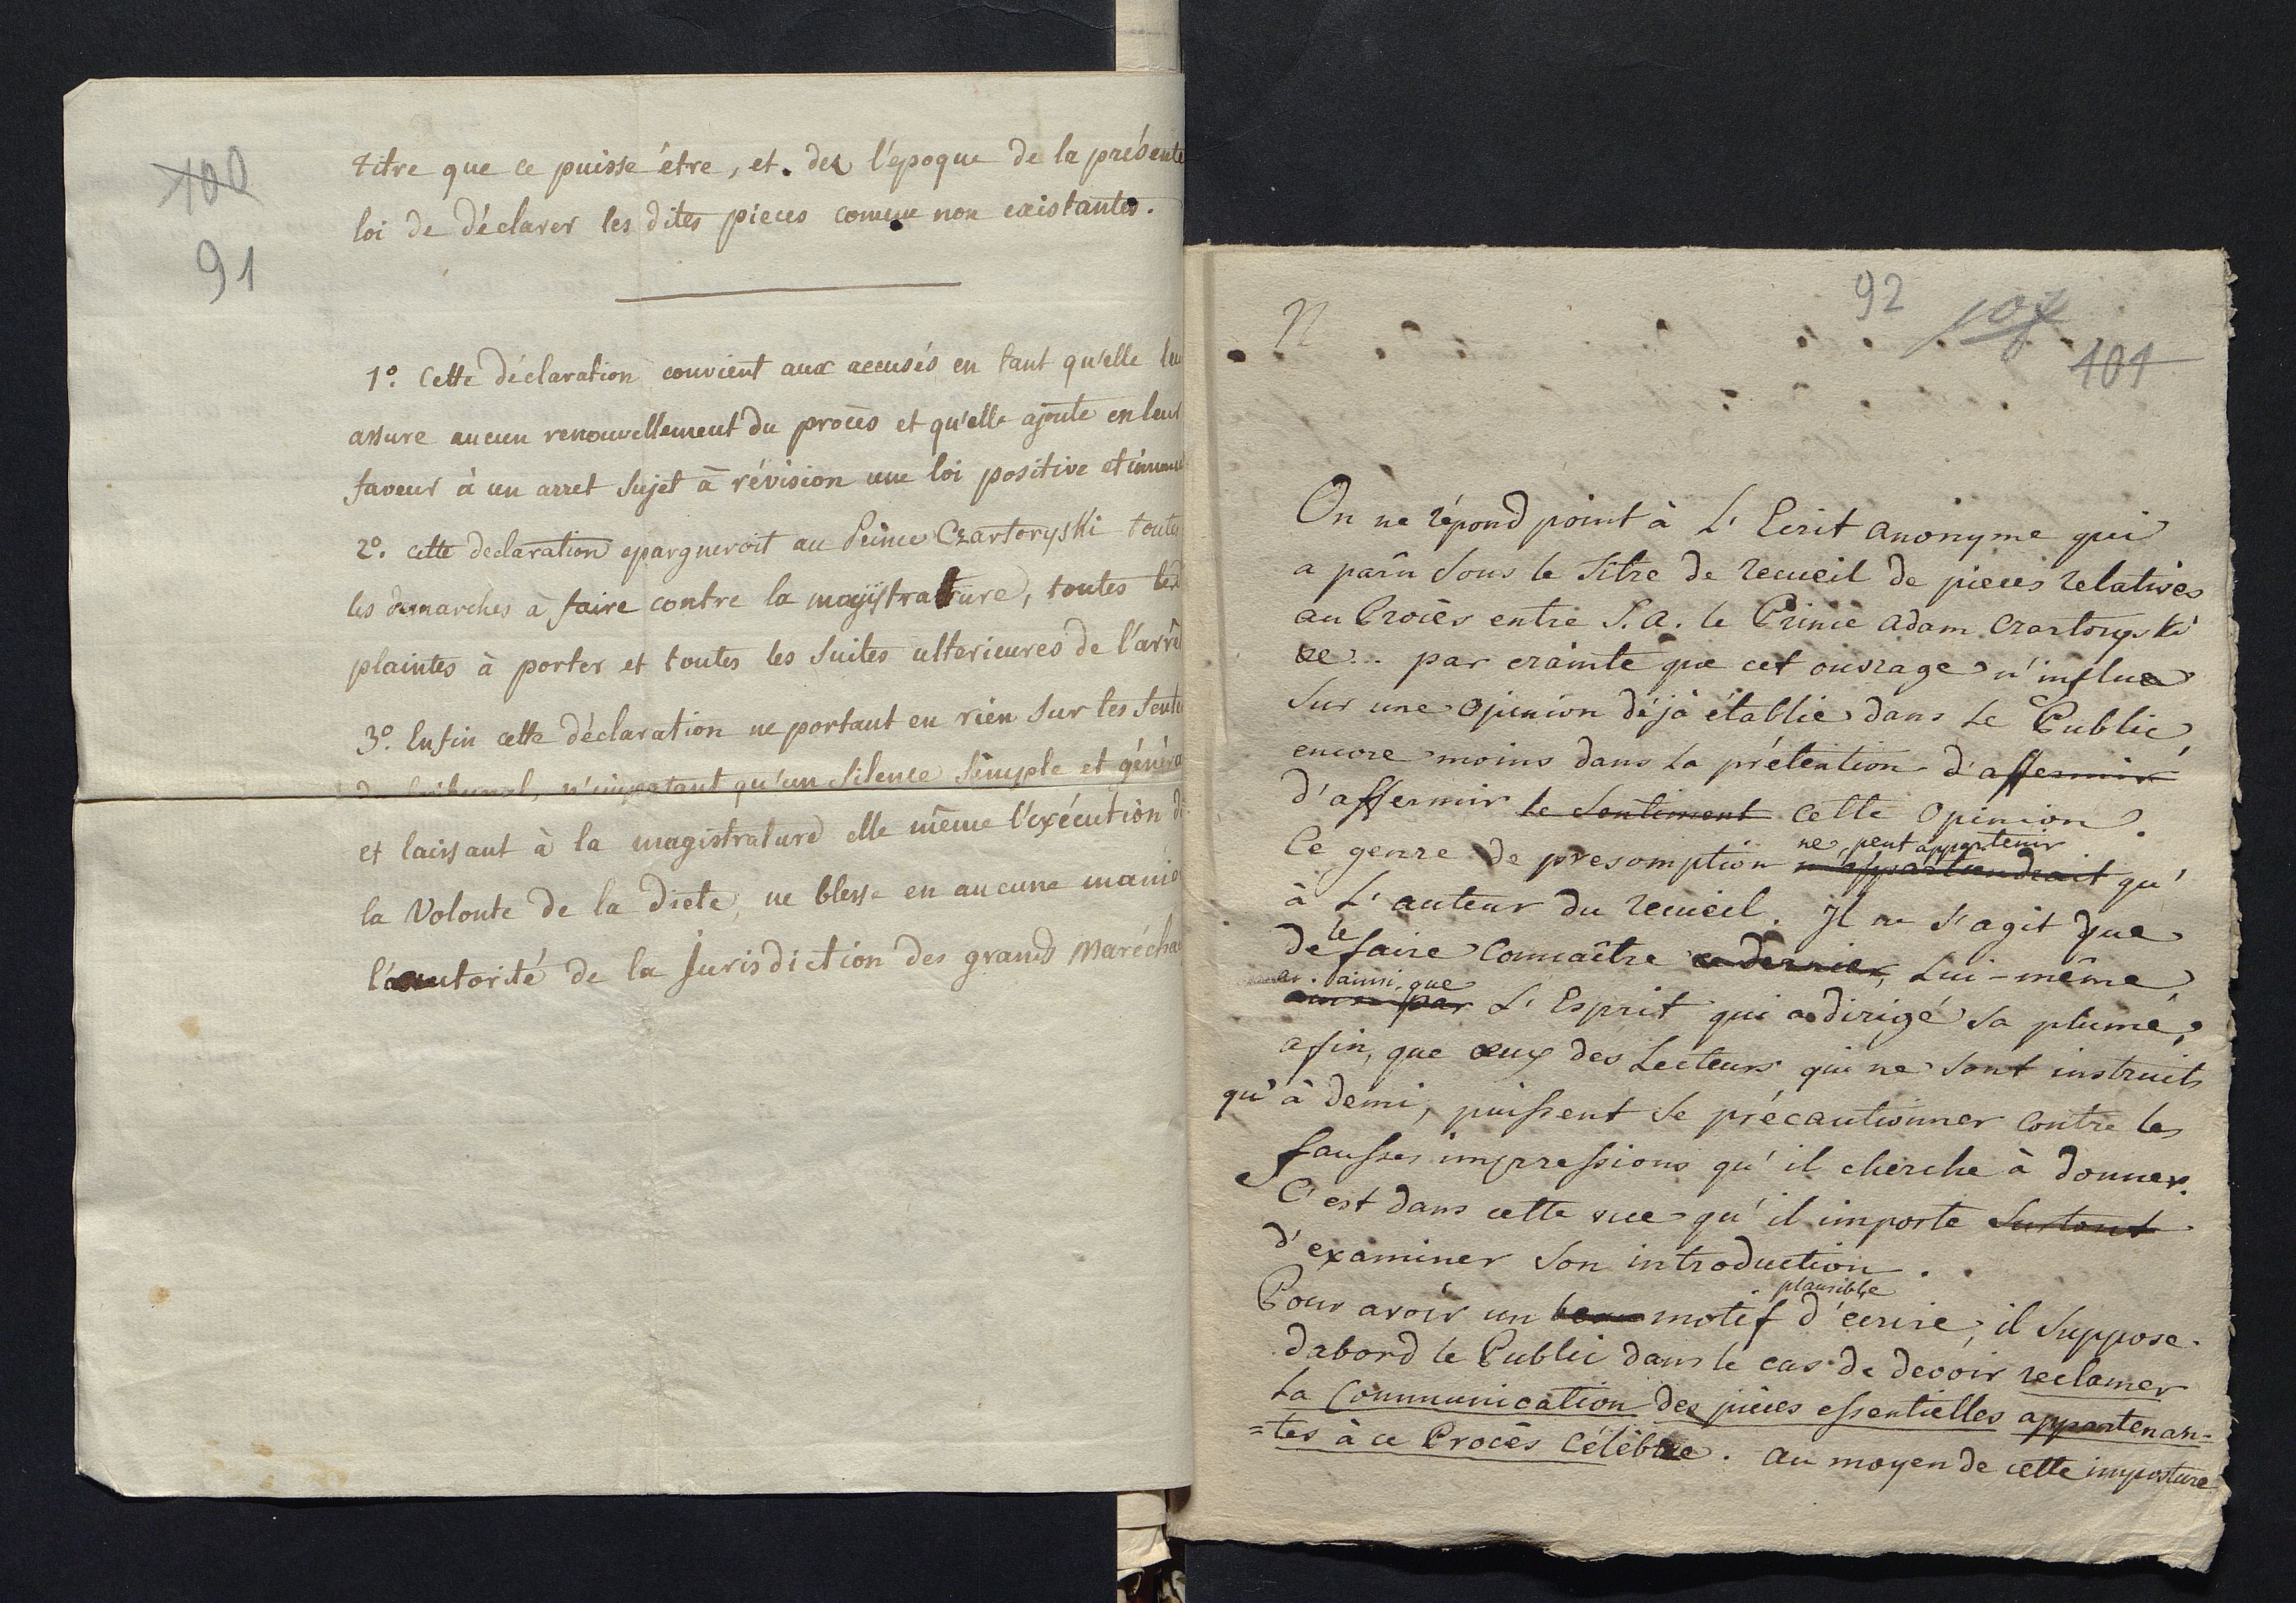 100
91
titre que ce puisse être, et. des l'époque de la présente
loi de déclarer les dites pieces comme non existantes.
1º. Cette déclaration convient aux accusés en tant qu'elle leu
assure aucun renouvellement du procès et qu'elle ajoute en leur
faveur à un arret sujet à révision une loi positive et immu
2º. cette declaration epargneroit au Prince Czartoryski toutes
les demarches à faire contre la magistrature, toutes les
plaintes à porter et toutes les suites ulterieures de l'arrê
3º. Enfin cette déclaration ne portant en rien sur les sente
du tribunal, n'important qu'un silence simple et généra
et laissant à la magistrature elle même l'exécution de
la Volonté de la diete, ne blesse en aucune maniè
l'autorité de la Jurisdiction des grands Marécha
N
92
101
On ne répond point à L'Ecrit anonyme qui
a parû sous le titre de recueil de pieces relatives
au Procès entre S.A. le Prince Adam Czartoryski
&c... par crainte que cet ouvrage n'influe
sur une opinion déjà établie dans le Public,
encore moins dans la prétention d'affermir
d'affermir le sentiment cette opinion.
ne peut appartenir
Ce genre de presomption n'appartiendrait qu'
à L'auteur du recueil. Il ne s'agit que
le
de faire connaître ce dernier, Lui-même,
ainsi que
ainsi par L'Esprit qui a dirigé sa plume,
afin, que ceux des Lecteurs qui ne sont instruits
qu'à demi, puissent se précautionner contre les
fausses impressions qu'il cherche à donner.
C'est dans cette vue qu'il importe surtout
d'examiner son introduction.
plausible
Pour avoir un beau motif d'ecrire, il suppose
d'abord le Public dans le cas de devoir reclamer
la Communication des pièces essentielles appartenan-
=tes à ce Procès célèbre. au moyen de cette imposture